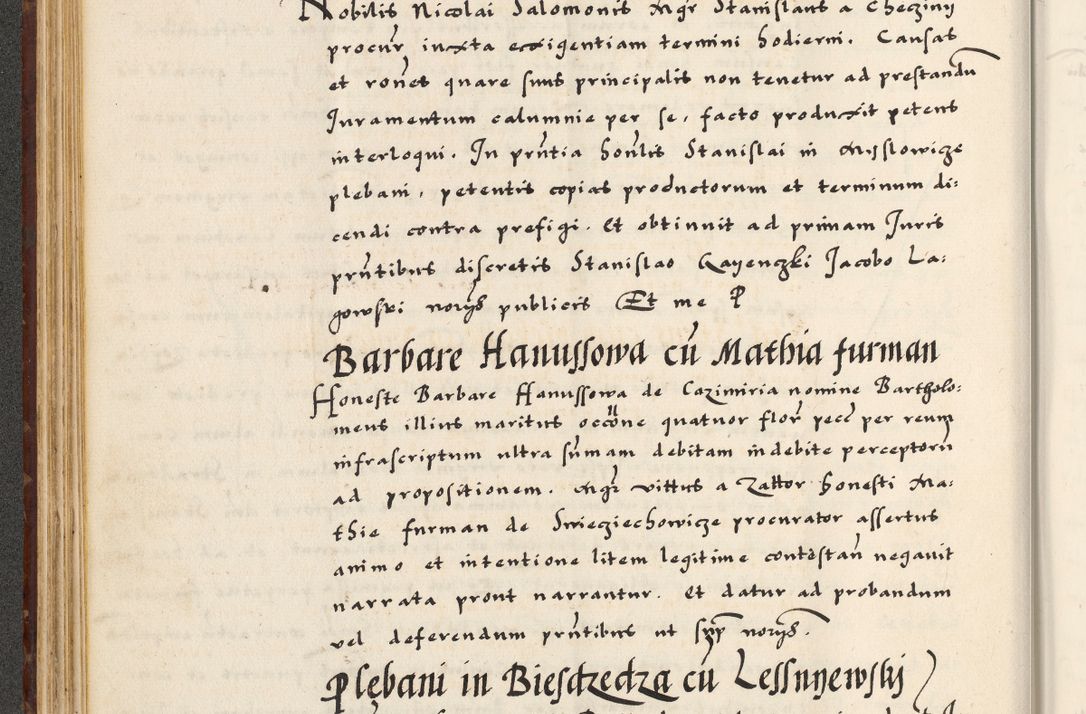 Nobilis Nicolai Salomonis Mgr̄ Stanislaus a Checziny
procur̄ iuxta exigentiam termini hodierni. Causas
et rōnes quare suus principalis non tenetur ad prestandū
Juramentum calumnie per se, facto produxit petens
interloqui. In pn̄tia hon̄lis Stanislai in Myslowicze
plebani, petentis copias productorum et terminum di:
cendi contra prefigi. Et obtinuit ad primam Juris
pn̄tibus discretis Stanislao Gayenczki Jacobo La:
gowski norijs publicis Et me P
Barbare Hanussowa cū Mathia furman
Honeste Barbare Hanussowa de Cazimiria nomine Bartholo:
meus illius maritus occōne quatuor flor̄ pecc̄ per reum
infrascriptum ultra sūmam debitam indebite perceptorū
ad propositionem. Mgr̄ vittus a Zattor honesti Ma:
thie furman de Swiecziechowicze procurator assertus
animo et intentione litem legitime contestan̄ negauit
narrata prout narrantur. Et datur ad probandum
vel deferendum pn̄tibus ut sup̄ norijs.
Plebani in Biesdzedza cū Lessnyewskj